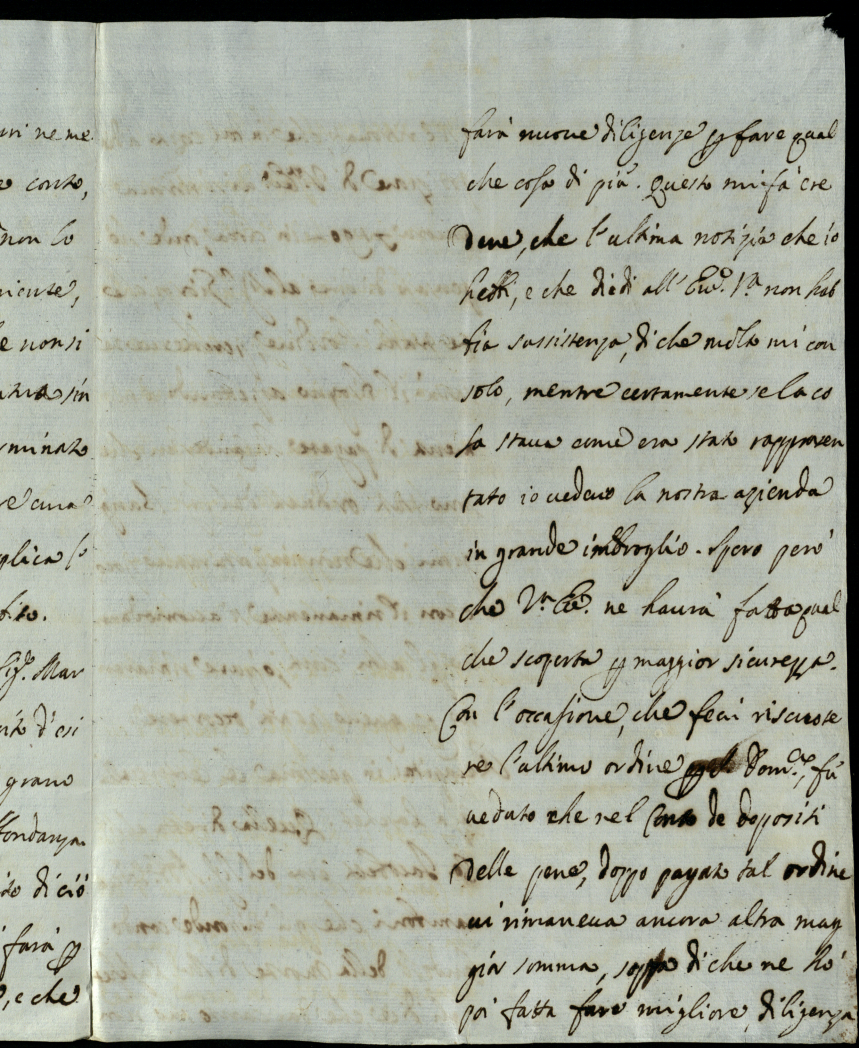 uri ne me
e conto,
non lo
niente,
e non si
sin
rminato
re cura
plica
Sig.r Mar
d'esi
grano
to di ciò
farà p
, e che
farà nuove diligenze p fare qual
che cosa di più. Questo mi fà cre
dere, che l'ultima notizia che io
hebbi, e che diedi all'Ecc. V.ra non hab
bia sussistenza, di che molto mi con
solo, mentre certamente se la co
sa staua come era stato rappresen
tato io uedeuo la nostra azienda
in grande imbroglio. Spero però
che V.ra Ecc. ne haurà fatto qual
che scoperta p maggior sicurezza.
Con l'occasione, che feci riscuote
re l'ultimo ordine Dom.co, fù
ueduto che nel Conto de depositi
delle pene, doppo pagato tal ordine
ui rimaneua ancora altra mag
gior somma, sopra di che ne hò
poi fatta fare migliore diligenza